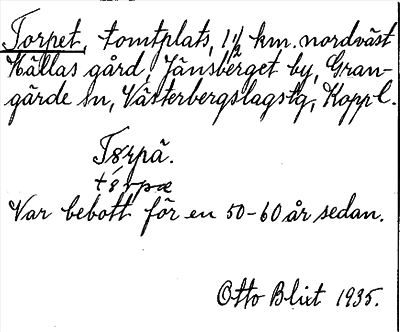 Torpet, tomtplats, 1 1/2 km. nordväst
Källas gård, Jänsberget by, Gran-
gärde sn, Västerbergslagstg, Koppl.
Tørpä.
Var bebott för en 50-60 år sedan.
Otto Blixt 1935.